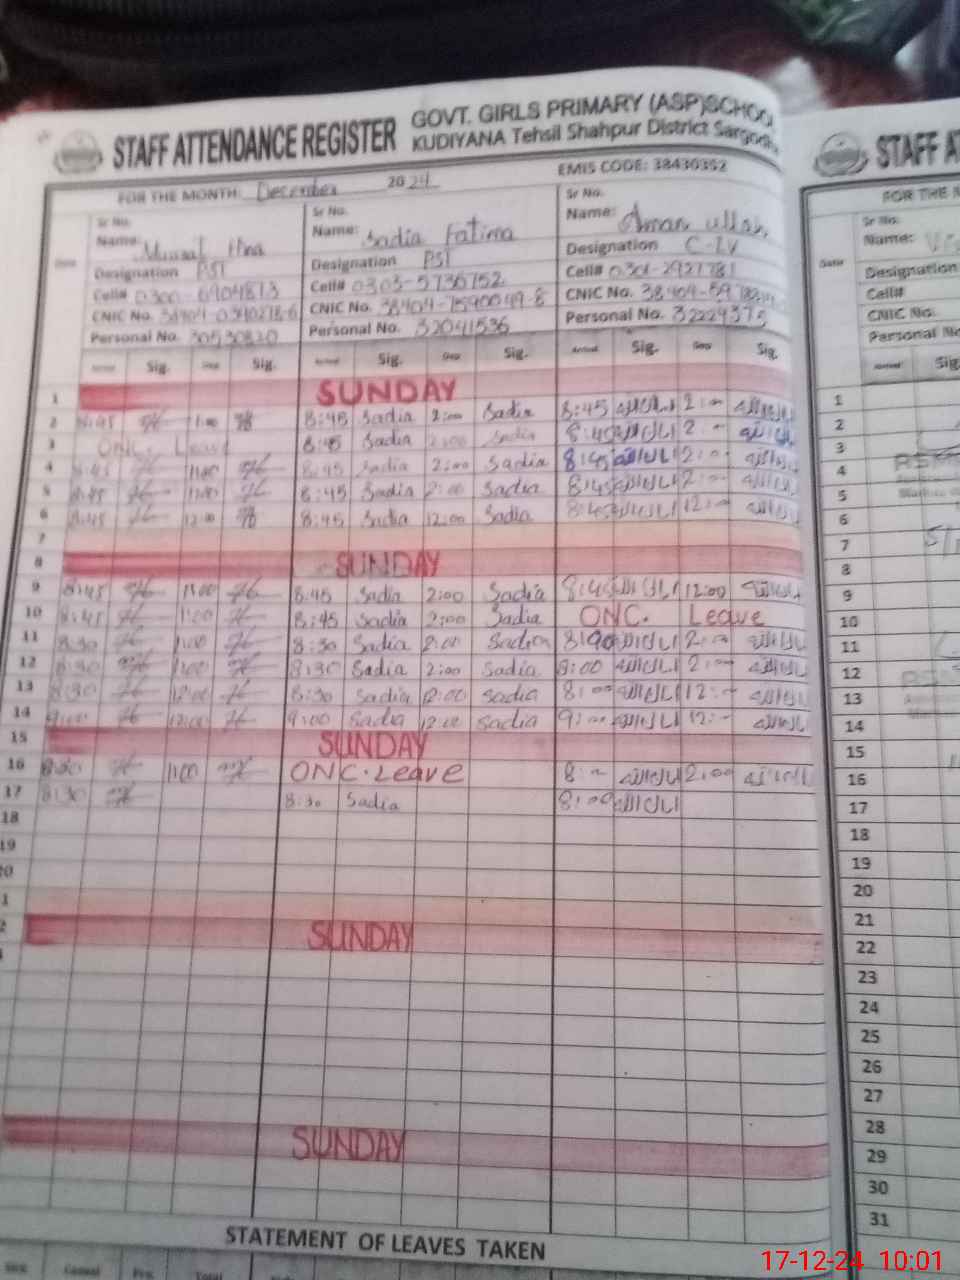 STAFF ATTENDANCE REGISTER GOVT. GIRLS PRIMARY (ASP)SCHOOL
KUDIYANA Tehsil Shahpur District Sargodha
STAFF
FOR THE MONTH: December 2024 EMIS CODE: 38430352
FOR THE
Sr No. Sr No. Sr No.
Name: Name: Sadia Fatima Name: Aman ullah
Designation PST Designation PST Designation C-IV
Cell# Cell# 0303-5736752 Cell# 0301-2927781
CNIC No. CNIC No. 38404-7590049-8 CNIC No. 38404-59
Personal No. 30530820 Personal No. 32041536 Personal No.
Sr No.
Name:
Designation
Cell#
CNIC No.
Personal No
Date Arrival Sig. Dep Sig. Arrival Sig. Dep Sig. Arrival Sig. Dep Sig.
1 SUNDAY
2 8:45 8:45 Sadia 2:00 Sadia 8:45 امان اللہ 2:00 امان اللہ
3 ONC. Leave 8:45 Sadia 2:00 Sadia 8:45 امان اللہ 2:00 امان اللہ
4 8:45 8:45 Sadia 2:00 Sadia 8:45 امان اللہ 2:00 امان اللہ
5 8:45 8:45 Sadia 2:00 Sadia 8:45 امان اللہ 2:00 امان اللہ
6 8:45 12:00 8:45 Sadia 12:00 Sadia 8:45 امان اللہ 12:00 امان اللہ
7
8 SUNDAY
9 8:45 8:45 Sadia 2:00 Sadia 8:45 امان اللہ 12:00 امان اللہ
10 8:45 8:45 Sadia 2:00 Sadia ONC. Leave
11 8:30 8:30 Sadia 2:00 Sadia امان اللہ 2:00 امان اللہ
12 8:30 8:30 Sadia 2:00 Sadia 8:00 امان اللہ 2:00 امان اللہ
13 8:30 12:00 8:30 Sadia 12:00 Sadia 8:00 امان اللہ 12:00 امان اللہ
14 9:00 12:00 9:00 Sadia 12:00 Sadia 9:00 امان اللہ 12:00 امان اللہ
15 SUNDAY
16 8:30 ONC. Leave 8:00 امان اللہ 2:00 امان اللہ
17 8:30 8:30 Sadia 8:00 امان اللہ
18
19
20
SUNDAY
SUNDAY
1
2
3
4
5
6
7
8
9
10
11
12
13
14
15
16
17
18
19
20
21
22
23
24
25
26
27
28
29
30
31
STATEMENT OF LEAVES TAKEN
17-12-24 10:01